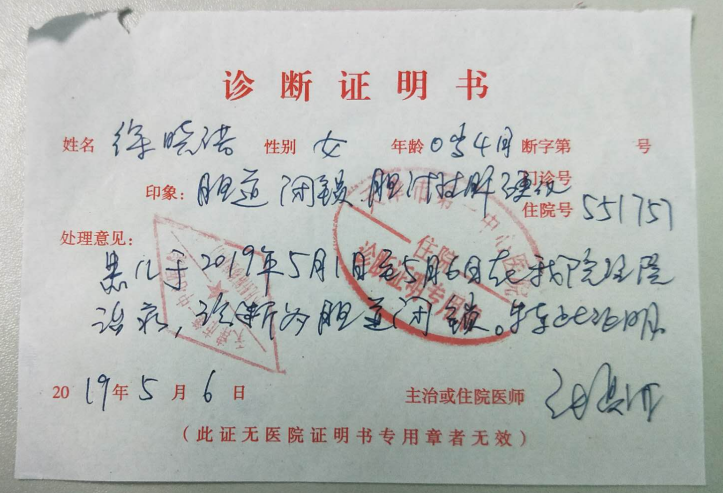 诊断证明书
姓名 徐晓诺 性别 女 年龄 0岁4月 断字第 号
门诊号
印象: 胆道闭锁 胆汁性肝硬化
住院号 551757
处理意见:
患儿于2019年5月1日至5月6日在我院住院
治疗, 诊断为胆道闭锁。特此证明.
天津市第一中心医院
住院
诊断证明专用章
2019年5月6日 主治或住院医师
(此证无医院证明书专用章者无效)